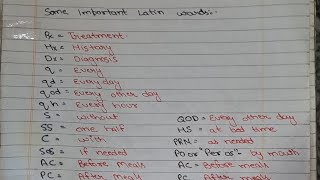 Some Important Latin words:-
Rx = Treatment
Hx = History
Dx = Diagnosis
q = Every
qd = Every day
qod = Every other day
qh = Every hour
S = without
SS = one half
C = with
SOS = If needed
AC = Before meals
PC = After meals
QOD = Every other day
HS = at bed time
PRN = as needed
PO or "Per os" = by mouth
AC = Before meals
PC = After meals